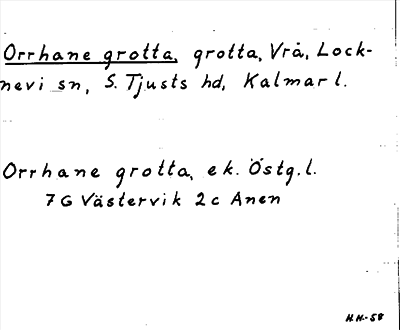 Orrhane grotta, grotta, Vrå, Lock-
nevi sn, S. Tjusts hd, Kalmar l.
Orrhane grotta, ek. Östg. l.
7 G Västervik 2 c Anen
H.H.-58